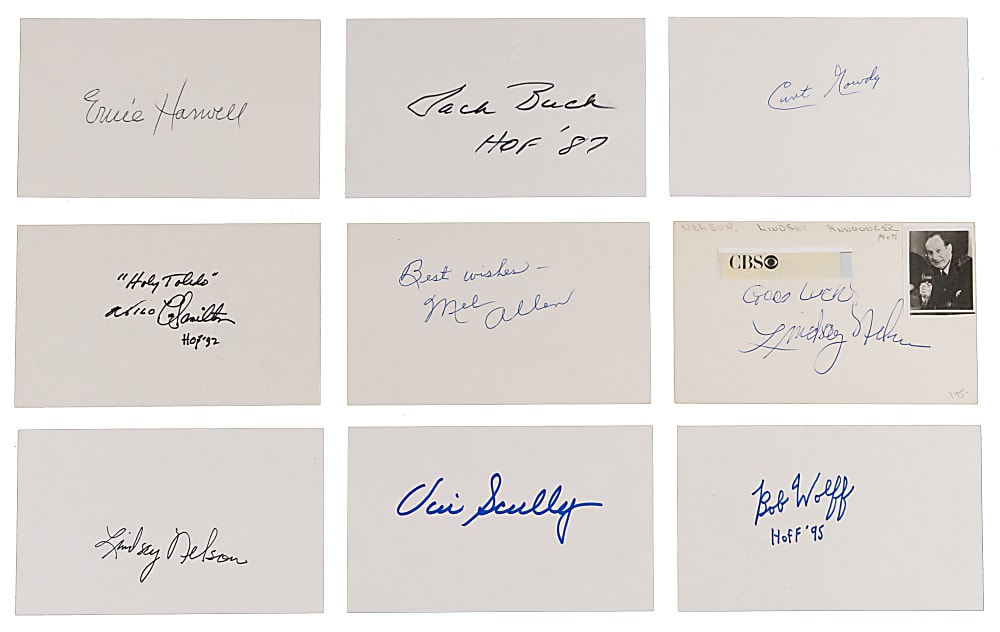 Ernie Harwell
Jack Buck
HOF '87
Curt Gowdy
"Holy Toledo"
Milo Hamilton
HOF '92
Best wishes –
Mel Allen
NELSON, LINDSEY ANNOUNCER
METS
CBS
GOOD LUCK,
Lindsey Nelson
195-
Lindsey Nelson
Vin Scully
Bob Wolff
HOFF '95